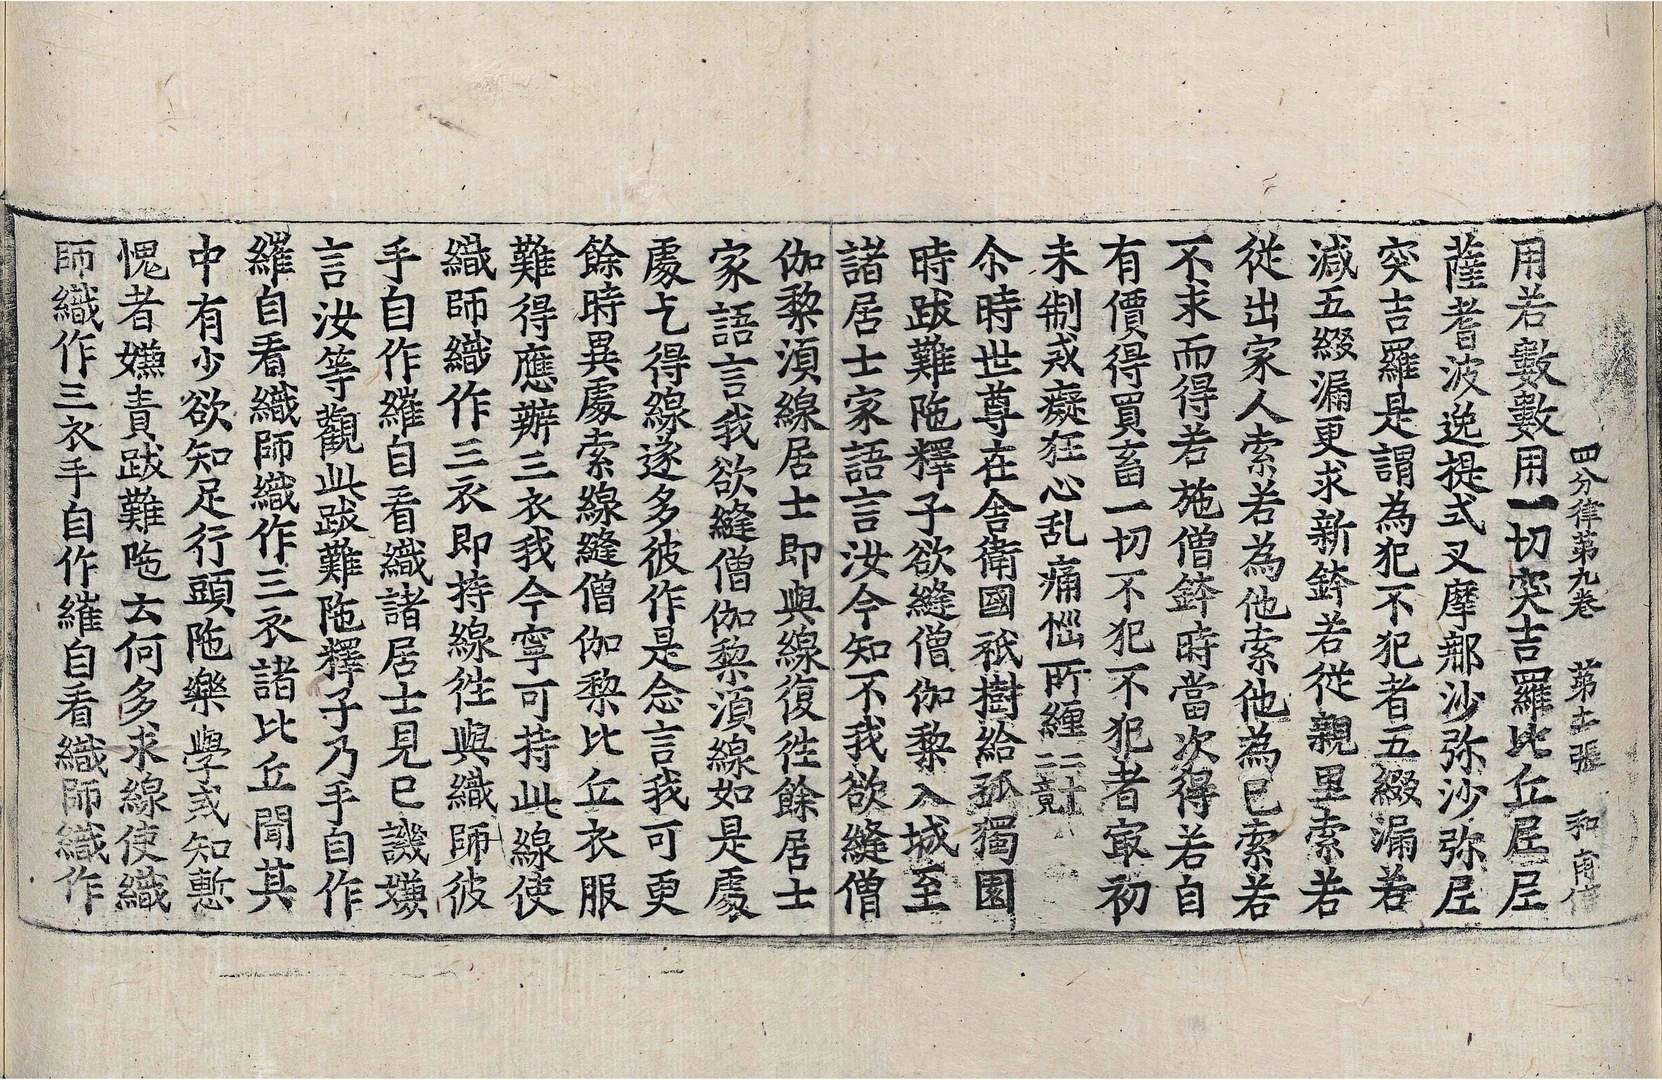 四分律第九卷 第十二張 和
用若數數用一切突吉羅比丘尼尼
薩耆波逸提式叉摩那沙弥沙弥尼
突吉羅是謂為犯不犯者五綴漏若
減五綴漏更求新鉢若從親里索若
從出家人索若為他索他為已索若
不求而得若施僧鉢時當次得若自
有價得買畜一切不犯不犯者㝡初
未制戒癡狂心乱痛惱所纏二十二竟
尒時世尊在舍衛國祇樹給孤獨園
時跋難陁釋子欲縫僧伽黎入城至
諸居士家語言汝今知不我欲縫僧
伽黎湏線居士即與線復徃餘居士
家語言我欲縫僧伽黎湏線如是處
處乞得線遂多彼作是念言我可更
餘時異處索線縫僧伽黎比丘衣服
難得應辦三衣我今寧可持此線使
織師織作三衣即持線徃與織師彼
手自作繀自看織諸居士見已譏嫌
言汝等觀此跋難陁釋子乃手自作
繀自看織師織作三衣諸比丘聞其
中有少欲知足行頭陁樂學戒知慙
愧者嫌責跋難陁云何多求線使織
師織作三衣手自作繀自看織師織作